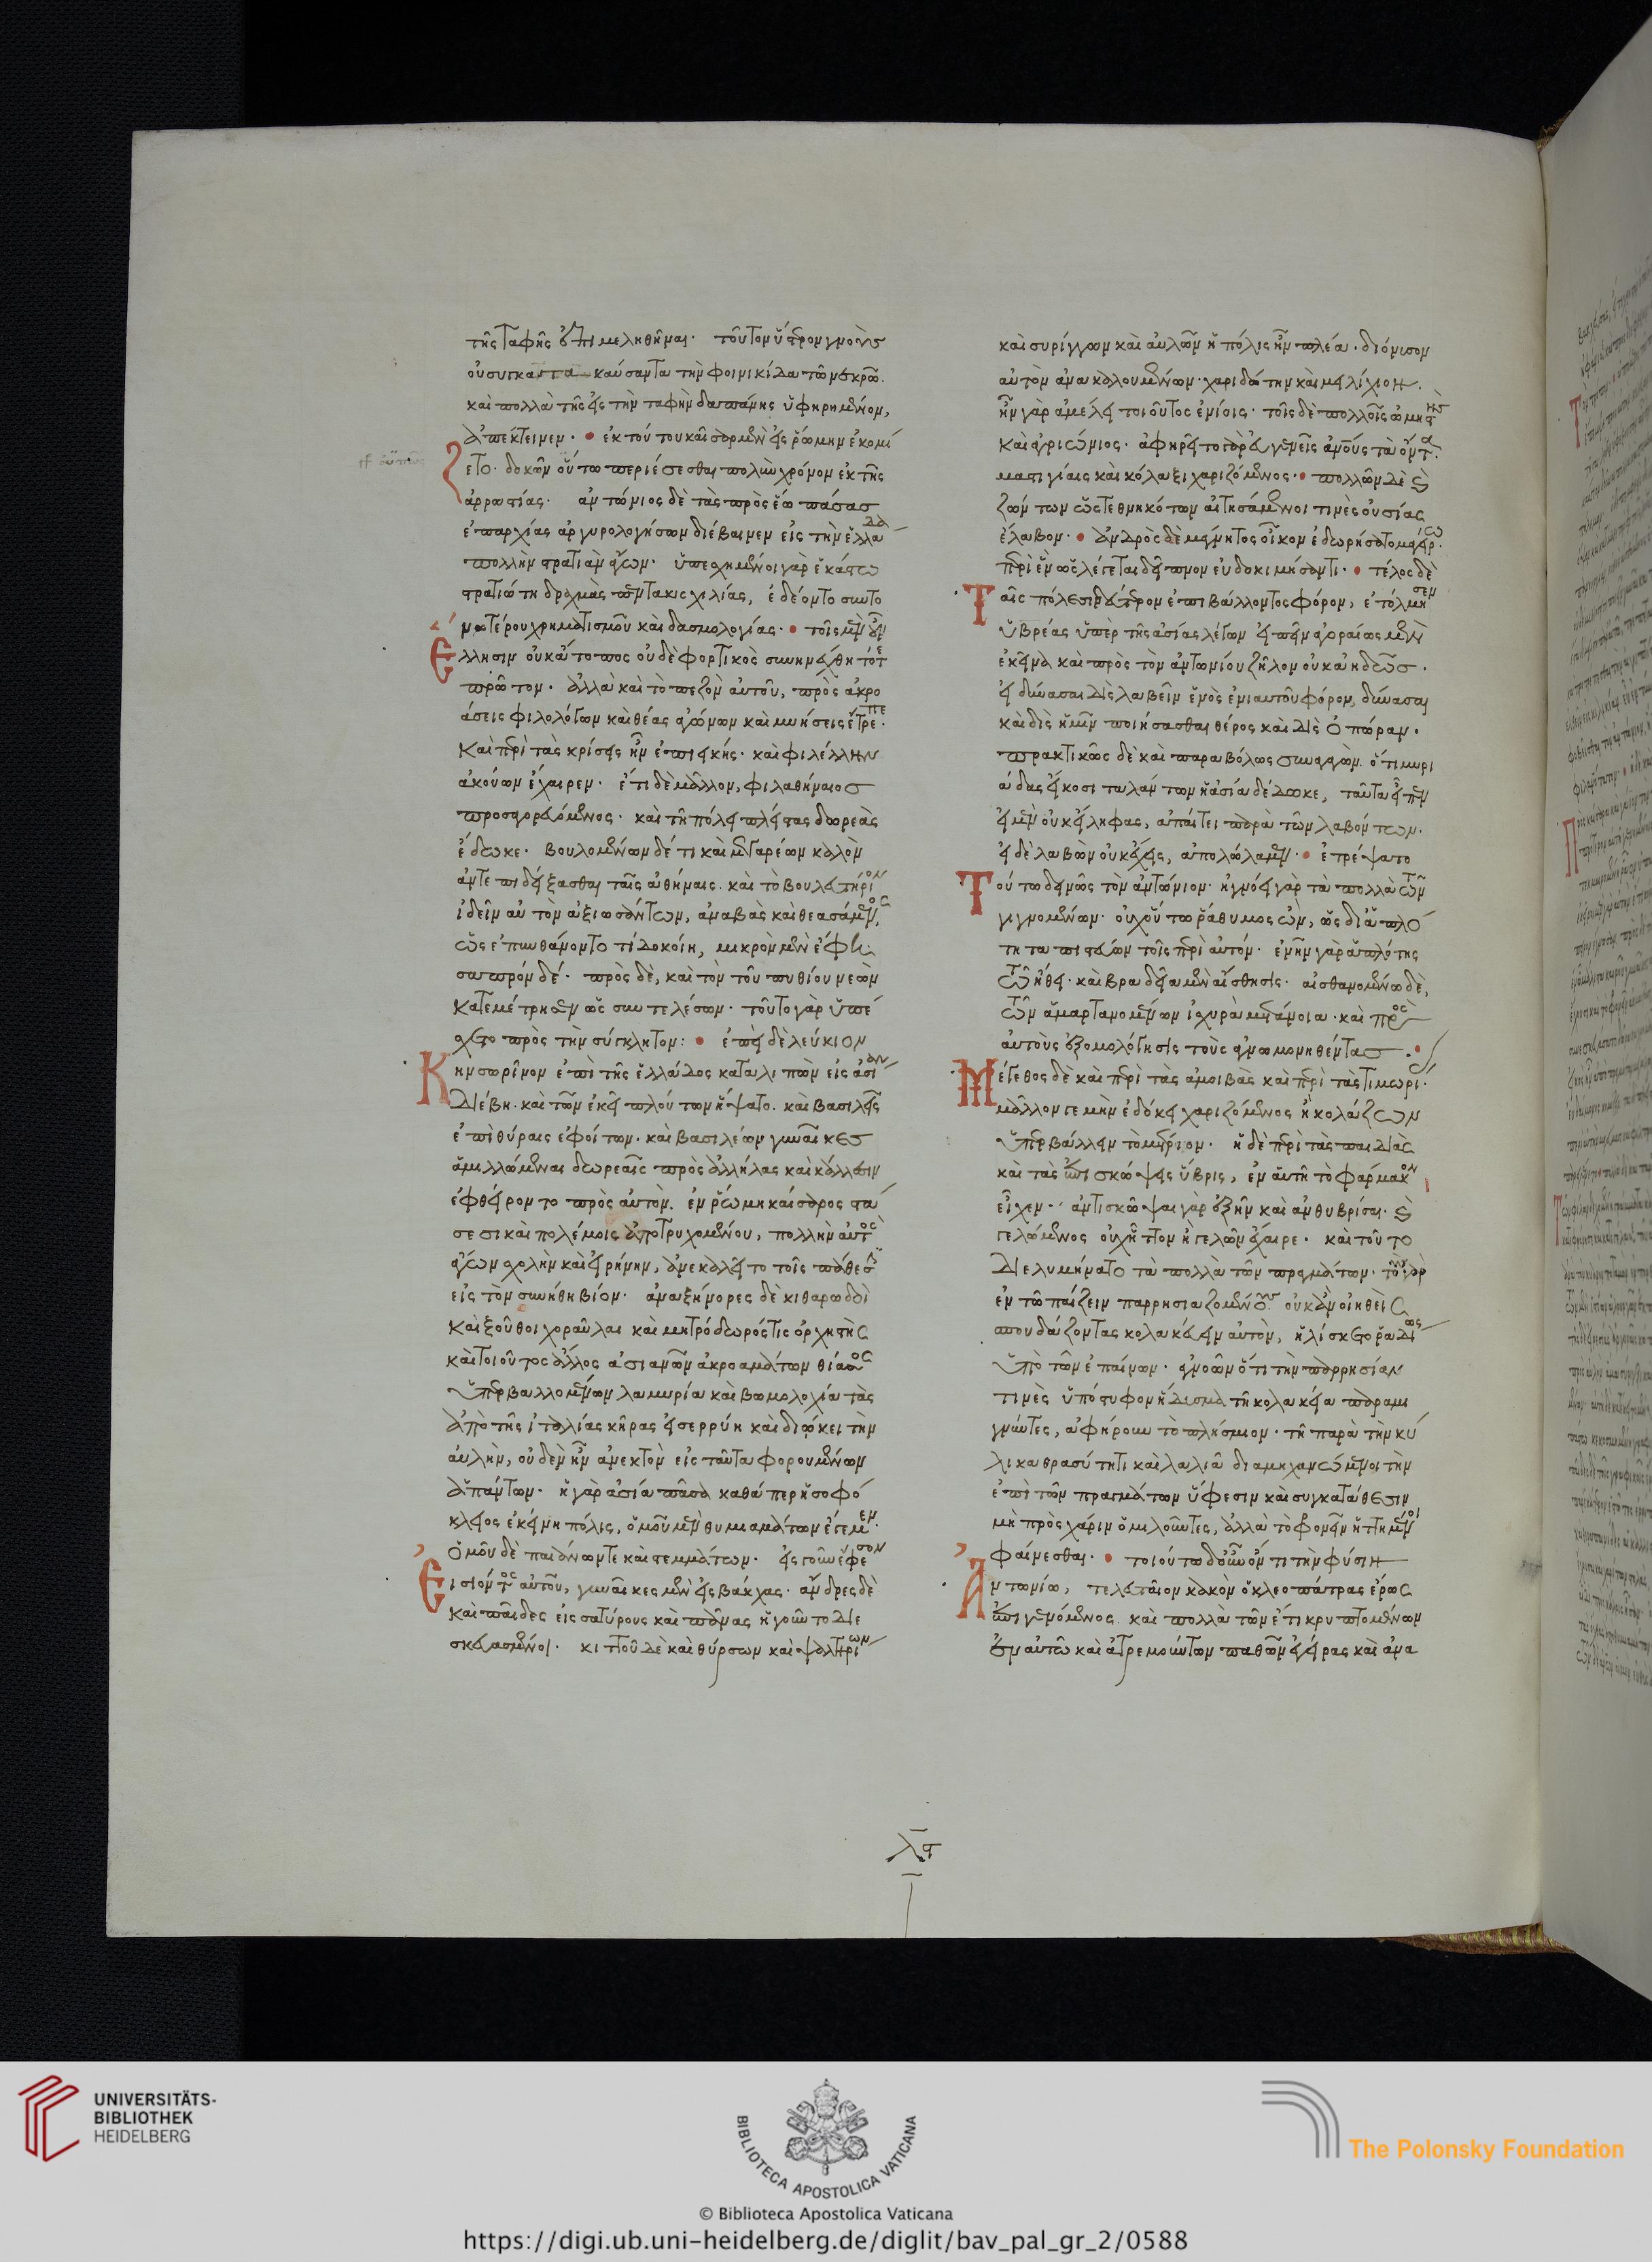 τῆς ταφῆς ἐπιμεληθῆναι· τοῦτον ὕστερον γνοὺς
οὐ συγκα καύσαντα τὴν φοινικίδα τῶ νεκρῶ.
καὶ πολλὰ τῆς εἰς τὴν ταφὴν δαπάνης ὑφηρημένον,
ἀπέκτεινεν· ἐκ τούτου καῖσαρ μὲν εἰς ῥώμην ἐκομί
ζετο· δοκῶν οὔτω περιέσεσθαι πολὺν χρόνον ἐκ τῆς
ἀρρωστίας. ἀντώνιος δὲ τὰς πρὸς ἕω πάσας
ἐπαρχίας ἀργυρολογήσων διέβαινεν εἰς τὴν ἑλλάδα
πολλὴν στρατιὰν ἄγων. ὑπεσχημένοι γὰρ ἑκάστω
στρατιώτη δραχμὰς πεντακισχιλίας, ἐδέοντο συντο
νωτέρου χρηματισμοῦ καὶ δασμολογίας· τοῖς μὲν οὖν
Ελλησιν οὐκ ἄτοπος οὐδὲ φορτικὸς συνηνέχθη τότε
πρῶτον· ἀλλὰ καὶ τὸ παῖζον αὐτοῦ, πρὸς ἀκρο
άσεις φιλολόγων καὶ θέας ἀγώνων καὶ μυήσεις ἔτρεπε.
καὶ περὶ τὰς κρίσεις ἦν ἐπιεικής· καὶ φιλέλλην
ἀκούων ἔχαιρεν· ἔτι δὲ μᾶλλον, φιλαθήναιος
προσαγορευόμενος· καὶ τῆ πόλει πλείστας δωρεὰς
ἔδωκε· βουλομένων δέ τι καὶ μεγαρέων καλὸν
ἀντεπιδείξασθαι ταῖς ἀθήναις· καὶ τὸ βουλευτήριον
ἰδεῖν αὐτὸν ἀξιωσάντων, ἀναβὰς καὶ θεασάμενος,
ὡς ἐπυνθάνοντο τί δοκοίη, μικρὸν μὲν ἔφη·
σαπρὸν δέ· πρὸς δὲ, καὶ τὸν τοῦ πυθίου νεὼν
κατεμέτρησεν ὡς συντελέσων· τοῦτο γὰρ ὑπέ
σχετο πρὸς τὴν σύγκλητον: ἐπεὶ δὲ λεύκιον
Κηνσωρῖνον ἐπὶ τῆς ἑλλάδος καταλιπὼν εἰς ἀσίαν
διέβη· καὶ τῶν ἐκεῖ πλούτων ἥψατο· καὶ βασιλεῖς
ἐπὶ θύραις ἐφοίτων· καὶ βασιλέων γυναῖκες
ἁμιλλώμεναι δωρεαῖς πρὸς ἀλλήλας καὶ κάλλεσιν
ἐφθείροντο πρὸς αὐτὸν. ἐν ῥώμη καίσαρος στά
σεσι καὶ πολέμοις ἀποτρυχομένου, πολλὴν αὐτὸς
ἄγων σχολὴν καὶ εἰρήνην, ἀνεκαλεῖτο τοῖς πάθεσιν
εἰς τὸν συνήθη βίον· ἀναξήνορες δὲ κιθαρωδοὶ
καὶ ξοῦθοι χοραῦλαι καὶ μητρόδωρός τις ὀρχηστὴς
καὶ τοιοῦτος ἄλλος ἀσιανῶν ἀκροαμάτων θίασος
ὑπερβαλλομένων λαμυρία καὶ βωμολοχία τὰς
ἀπὸ τῆς ἰταλίας κῆρας εἰσερρύη καὶ διώκει τὴν
αὐλὴν, οὐδὲν ἦν ἀνεκτὸν εἰς ταῦτα φορουμένων
ἁπάντων· ἡ γὰρ ἀσία πᾶσα καθάπερ ἡ σοφό
κλειος ἐκείνη πόλις, ὁμοῦ μὲν θυμιαμάτων ἔγεμεν.
ὁμοῦ δὲ παιάνων τε καὶ στεμμάτων· εἰς γοῦν ἔφεσον
Εἰσιόντος αὐτοῦ, γυναῖκες μὲν εἰς βάκχας· ἄνδρες δὲ
καὶ παῖδες εἰς σατύρους καὶ πᾶνας ἡγοῦντο διε
σκευασμένοι· κιττοῦ δὲ καὶ θύρσων καὶ ψαλτηρίων
καὶ συρίγγων καὶ αὐλῶν ἡ πόλις ἦν πλέα· διόνυσον
αὐτὸν ἀνακαλουμένων· χαριδότην καὶ μειλίχιον.
ἦν γὰρ ἀμέλει τοιοῦτος ἐνίοις· τοῖς δὲ πολλοῖς ὠμηστὴς
καὶ ἀγριώνιος· ἀφηρεῖτο γὰρ εὐγενεῖς ἀν̅ο̅υ̅ς τὰ ὄντα.
μαστιγίαις καὶ κόλαξι χαριζόμενος· πολλῶν δὲ καὶ
ζώντων ὥς τεθνηκότων αἰτησάμενοί τινες οὐσίας
ἔλαβον· ἀνδρὸς δὲ μάγνητος οἶκον ἐδωρήσατο μαγείρω.
περὶ ἓν ὡς λέγεται δεῖπνον εὐδοκιμήσαντι· τέλος δὲ
Ταῖς πόλεσι δεύτερον ἐπιβάλλοντος φόρον, ἐτόλμησεν
ὑβρέας ὑπὲρ τῆς ἀσίας λέγων εἰπεῖν ἀγοραίως μὲν
ἐκεῖνα καὶ πρὸς τὸν ἀντωνίου ζῆλον οὐκ ἀηδῶς.
εἰ δύνασαι δὶς λαβεῖν ἑνὸς ἐνιαυτοῦ φόρον, δύνασαι
καὶ δὶς ἡμῖν ποιήσασθαι θέρος καὶ δὶς ὀπώραν.
πρακτικῶς δὲ καὶ παραβόλως συναγαγὼν. ὅτι μυρι
άδας εἴκοσι ταλάντων ἡ ἀσία δέδωκε, ταῦτα εἶπεν
εἰ μὲν οὐκ εἴληφας, ἀπαίτει παρὰ τῶν λαβόντων.
εἰ δὲ λαβὼν οὐκ ἔχεις, ἀπολώλαμεν· ἐτρέψατο
Τούτω δεινῶς τὸν ἀντώνιον· ἠγνόει γὰρ τὰ πολλὰ τῶν
γιγνομένων· οὐχ οὕτω ῥάθυμος ὢν, ὡς δι' ἁπλό
τητα πιστεύων τοῖς περὶ αὐτόν· ἐνῆν γὰρ ἁπλότης
τῶ ἤθει· καὶ βραδεῖα μὲν αἴσθησις· αἰσθανομένω δὲ,
τῶν ἁμαρτανομένων ἰσχυρὰ μετάνοια· καὶ πρὸς
αὐτοὺς ἐξομολόγησις τοὺς ἀγνωμονηθέντας.
Μέγεθος δὲ καὶ περὶ τὰς ἀμοιβὰς καὶ περὶ τὰς τιμωρί.
μᾶλλόν γε μὴν ἐδόκει χαριζόμενος ἢ κολάζων
ὑπερβάλλειν τὸ μέτριον· ἡ δὲ περὶ τὰς παιδιὰς
καὶ τὰς ἐπισκώψεις ὕβρις, ἐν αὑτῆ τὸ φάρμακον
εἶχεν· ἀντισκῶψαι γὰρ ἐξῆν καὶ ἀνθυβρίσαι· καὶ
γελώμενος οὐχ ἧττον ἢ γελῶν ἔχαιρε· καὶ τοῦτο
διελυμήνατο τὰ πολλὰ τῶν πραγμάτων· τοὺς γὰρ
ἐν τῶ παίζειν παρρησιαζομένους οὐκ ἂν οἰηθεὶς
σπουδάζοντας κολακεύειν αὐτὸν, ἡλίσκετο ῥαδίως
ὑπὸ τῶν ἐπαίνων· ἀγνοῶν ὅτι τὴν παρρησίαν
τινὲς ὑπόστυφον ἥδυσμα τῆ κολακεία παραμι
γνύντες, ἀφήρουν τὸ πλήσμιον· τῆ παρὰ τὴν κύ
λικα θρασύτητι καὶ λαλιᾶ διαμηχανώμενοι τὴν
ἐπὶ τῶν πραγμάτων ὕφεσιν καὶ συγκατάθεσιν
μὴ πρὸς χάριν ὁμιλοῦντες, ἀλλὰ τὸ φονεῖν ἡττημένοι
φαίνεσθαι· τοιούτω δ' οὖν ὄντι τὴν φύσιν
Ἀντωνίω, τελευταῖον κακὸν ὁ κλεοπάτρας ἔρως
ἐπιγενόμενος· καὶ πολλὰ τῶν ἔτι κρυπτομένων
ἐν αὐτῶ καὶ ἀτρεμούντων παθῶν ἐγείρας καὶ ἀνα
λα
UNIVERSITÄTS-
BIBLIOTHEK
HEIDELBERG
BIBLIOTECA APOSTOLICA VATICANA
© Biblioteca Apostolica Vaticana
The Polonsky Foundation
https://digi.ub.uni-heidelberg.de/diglit/bav_pal_gr_2/0588